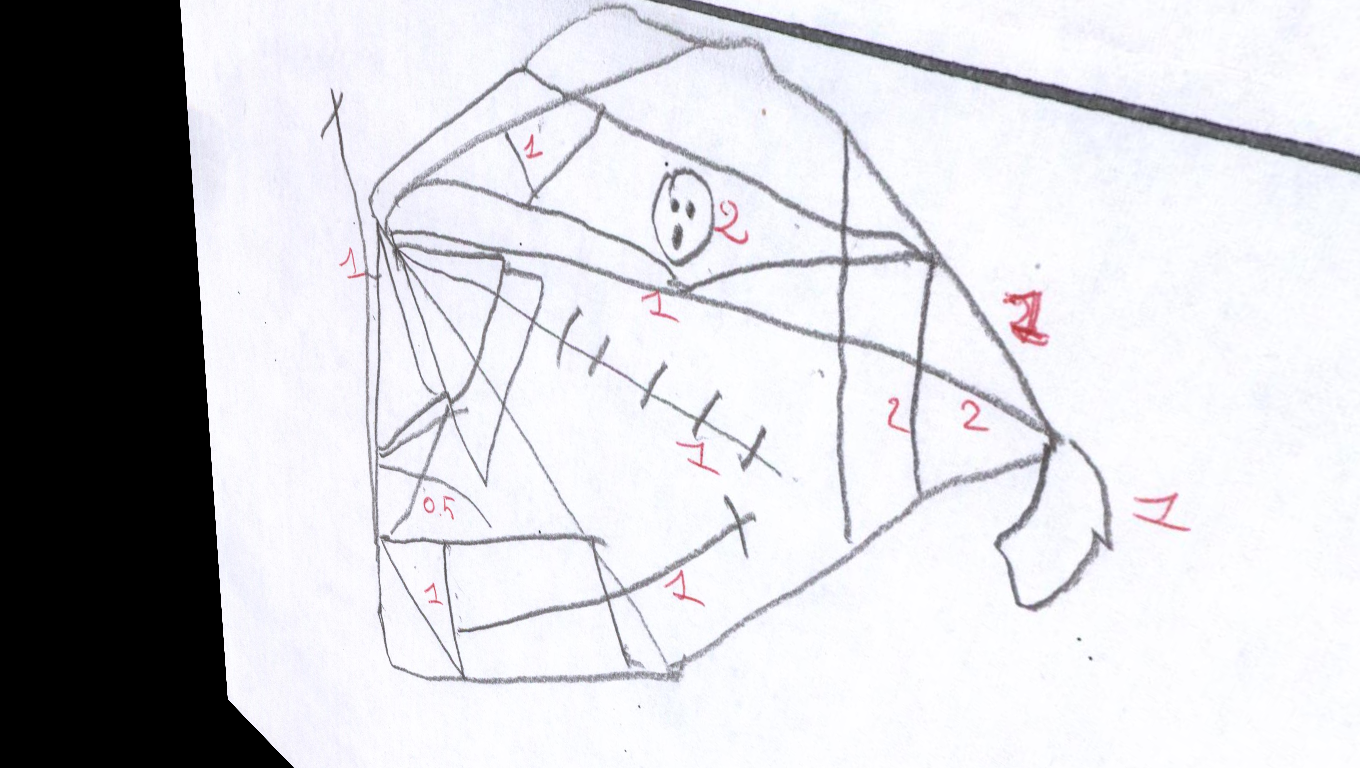 1
2
1
1
1
2
2
1
0.5
1
1
1